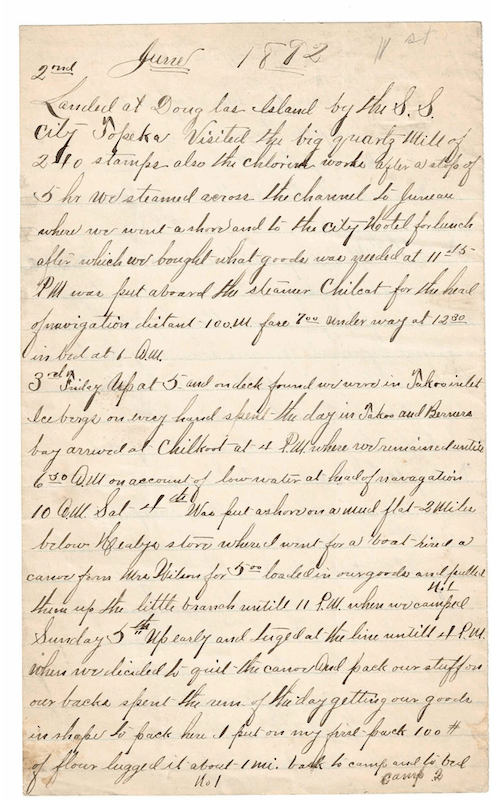 June 1892 11 st
2nd
Landed at Doug las Island by the S. S.
City Topeka Visited the big quartz Mill of
240 stamps also the chlorine works after a stop of
5 hr we steamed across the channel to Juneau
where we went ashore and to the City Hotel for lunch
after which we bought what goods was needed at 11 15
P.M was put aboard the steamer Chilcat for the head
of navigation distant 100 M. fare 7 00 under way at 12 30
in bed at 1 A.M.
3rd Friday Up at 5 and on deck found we were in Takoo inlet
Ice bergs on evry hand spent the day in Takoo and Berners
bay arrived at Chilkoot at 4 P.M. where we remained untill
6 30 A.M on account of low water at head of navagation
10 A.M. Sat 4th Was put ashore on a mud flat 2 Miles
below Healys store where I went for a boat hired a
canoe from Mrs Wilson for 5 00 loaded in our goods and pulled
them up the little branch untill 11 P.M. when we camped No1
Sunday 5th Up early and tuged at the line untill 4 P.M.
when we dicided to quit the canoe and pack our stuff on
our backs spent the rem. of the day getting our goods
in shape to pack here I put on my first pack 100 #
of flour lugged it about 1 mi. back to camp and to bed
No 1 Camp 2